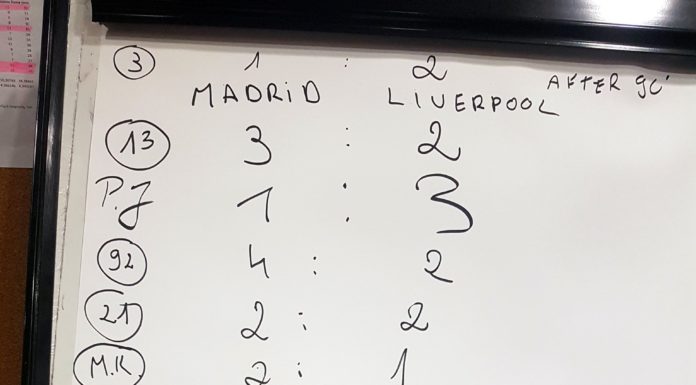 3 1 : 2
MADRID LIVERPOOL AFTER 90'
13 3 : 2
P.J 1 : 3
92 4 : 2
21 2 : 2
M.K 2 : 1